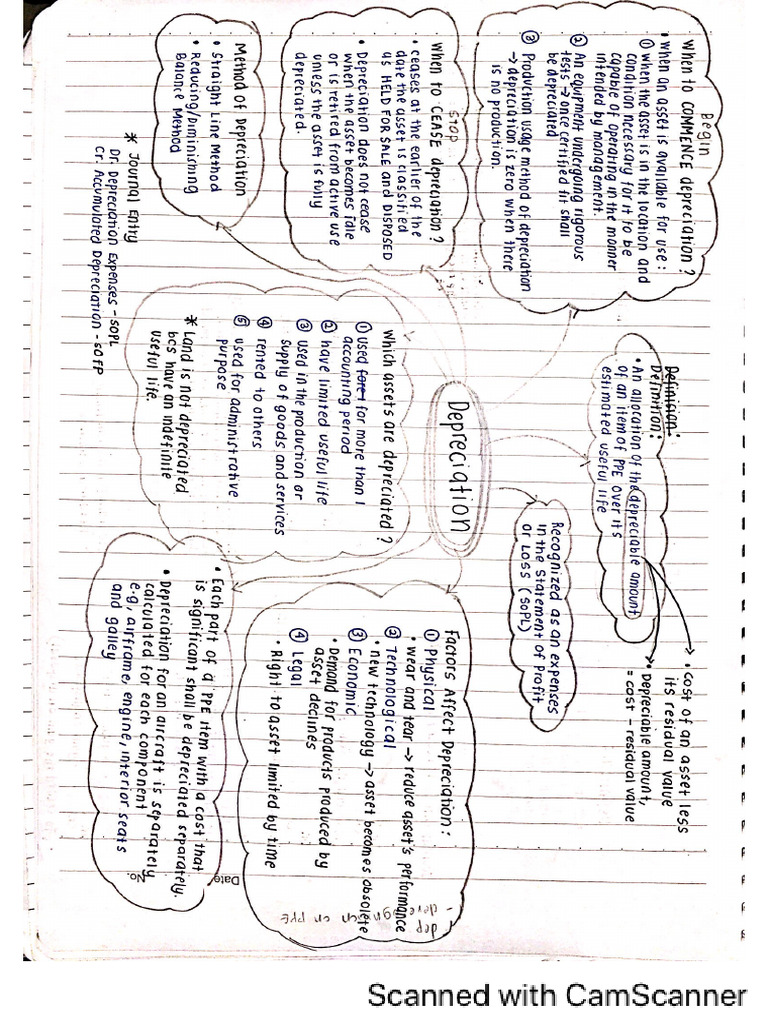 Depreciation
Definision:
Definition:
• An allocation of the depreciable amount
of an item of PPE over it's
estimated useful life
• cost of an asset less
its residual value
• Depreciable amount,
= cost - residual value
Recognized as an expenses
in the Statement of Profit
or Loss (SOPL)
Begin
When to COMMENCE depreciation?
• when an asset is available for use:
① when the asset is in the location and
condition necessary for it to be
capable of operating in the manner
intended by management.
② An equipment undergoing rigorous
tests → once certified fit shall
be depreciated
③ Production usage method of depreciation
→ depreciation is zero when there
is no production.
STOP
When to CEASE depreciation?
• ceases at the earlier of the
date the asset is classified
as HELD FOR SALE and DISPOSED
• Depreciation does not cease
when the asset becomes idle
or is retired from active use
unless the asset is fully
depreciated.
Method of Depreciation
• Straight Line Method
• Reducing/Diminishing
Balance Method
* Journal Entry
Dr. Depreciation Expenses - SOPL
Cr. Accumulated Depreciation - SOFP
Which assets are depreciated?
① Used for more than 1
accounting period
② have limited useful life
③ used in the production or
supply of goods and services
④ rented to others
⑤ used for administrative
purpose
* Land is not depreciated
bcs have an indefinite
useful life.
Factors Affect Depreciation:
① Physical
• wear and tear → reduce asset's performance
② Technological
• new technology → asset becomes obsolete
③ Economic
• Demand for products produced by
asset declines
④ Legal
• Right to asset limited by time
• Each part of a PPE item with a cost that
is significant shall be depreciated separately.
• Depreciation for an aircraft is separately
calculated for each component
e.g, airframe, engine, interior seats
and galley
No.
Date
Scanned with CamScanner